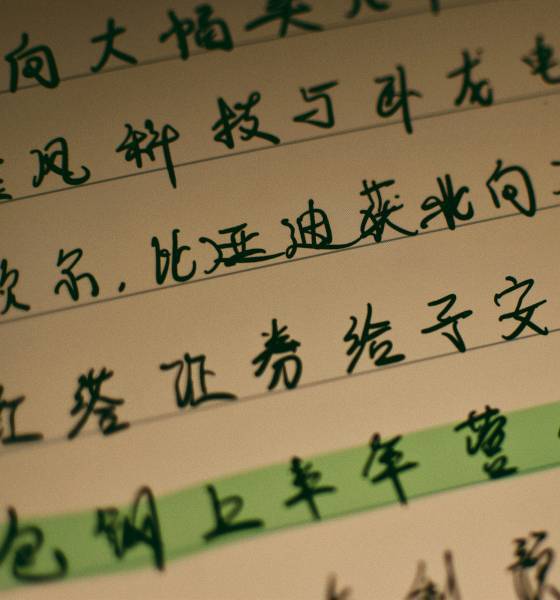 向大幅
风科技与卧龙电
尔.比亚迪获北向
红塔证券给予安
包钢上半年营